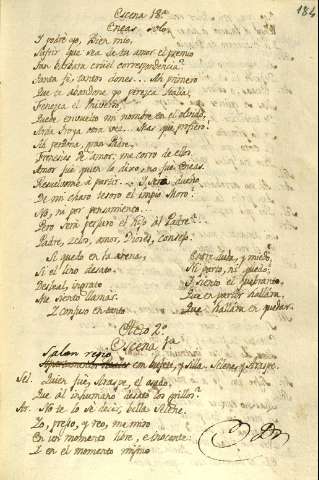 184
Escena 18ª
Eneas solo.
Y podré yo, Bien mio,
Sufrir que sea de tu amor el premio
Tan barbara cruel correspondencia?
Tanta fé, tantos dones... Ah primero
Que te abandone yo perezca Italia,
Fenezca el Universo.
Quede envuelto mi nombre en el olvido,
Arda Troya otra vez... Mas que profiero?
Ah perdona, gran Padre,
Amor fué quien lo dixo, no fué Eneas.
Resuelvome a partir... Y será dueño
De mi charo tesoro el impio Moro?
No, ni por pensamiento...
Pero será perjuro el hijo al Padre?
Padre, zelos, amor, Dioses, consejo.
Si quedo en la arena,
Si el lino desato,
Desleal, ingrato
Me siento llamar.
Y confuso en tanto
Entre duda, y miedo,
Ni parto, ni quedo;
Y siento el quebranto,
Que en partir hallára,
Que hallára en quedar.
Acto 2º
Escena 1ª
Salon regio
con bufete, y silla. Selene, y Araspe.
Sel. Quien fué, Araspe, el osado,
Que al inhumano desató los grillos?
Ar. No te lo sé decir, bella Selene.
Yo, preso, y reo, me miro
En un momento libre, e inocente:
Y en el momento mismo